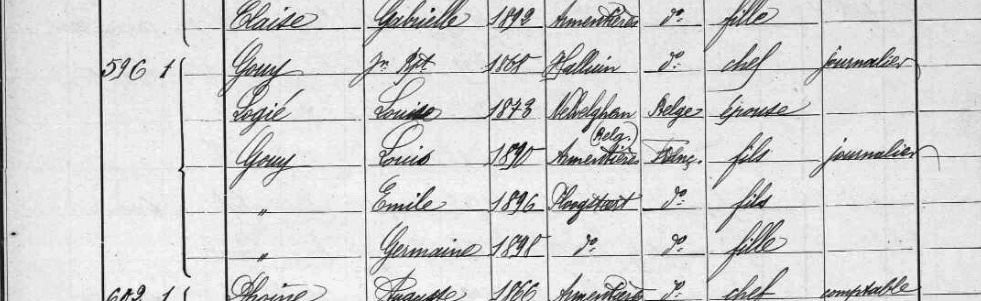 Claise Gabrielle 1892 Armentières do fille
596 1 Gouy Jn Bpt 1868 Halluin do chef journalier
Logié Louise 1873 Belge épouse
(Belg.)
Gouy Louis 1890 Armentières Franç. fils journalier
" Emile 1896 Ploegsteert do fils
" Germaine 1898 do do fille
602 1 Auguste 1866 Armentières do chef comptable